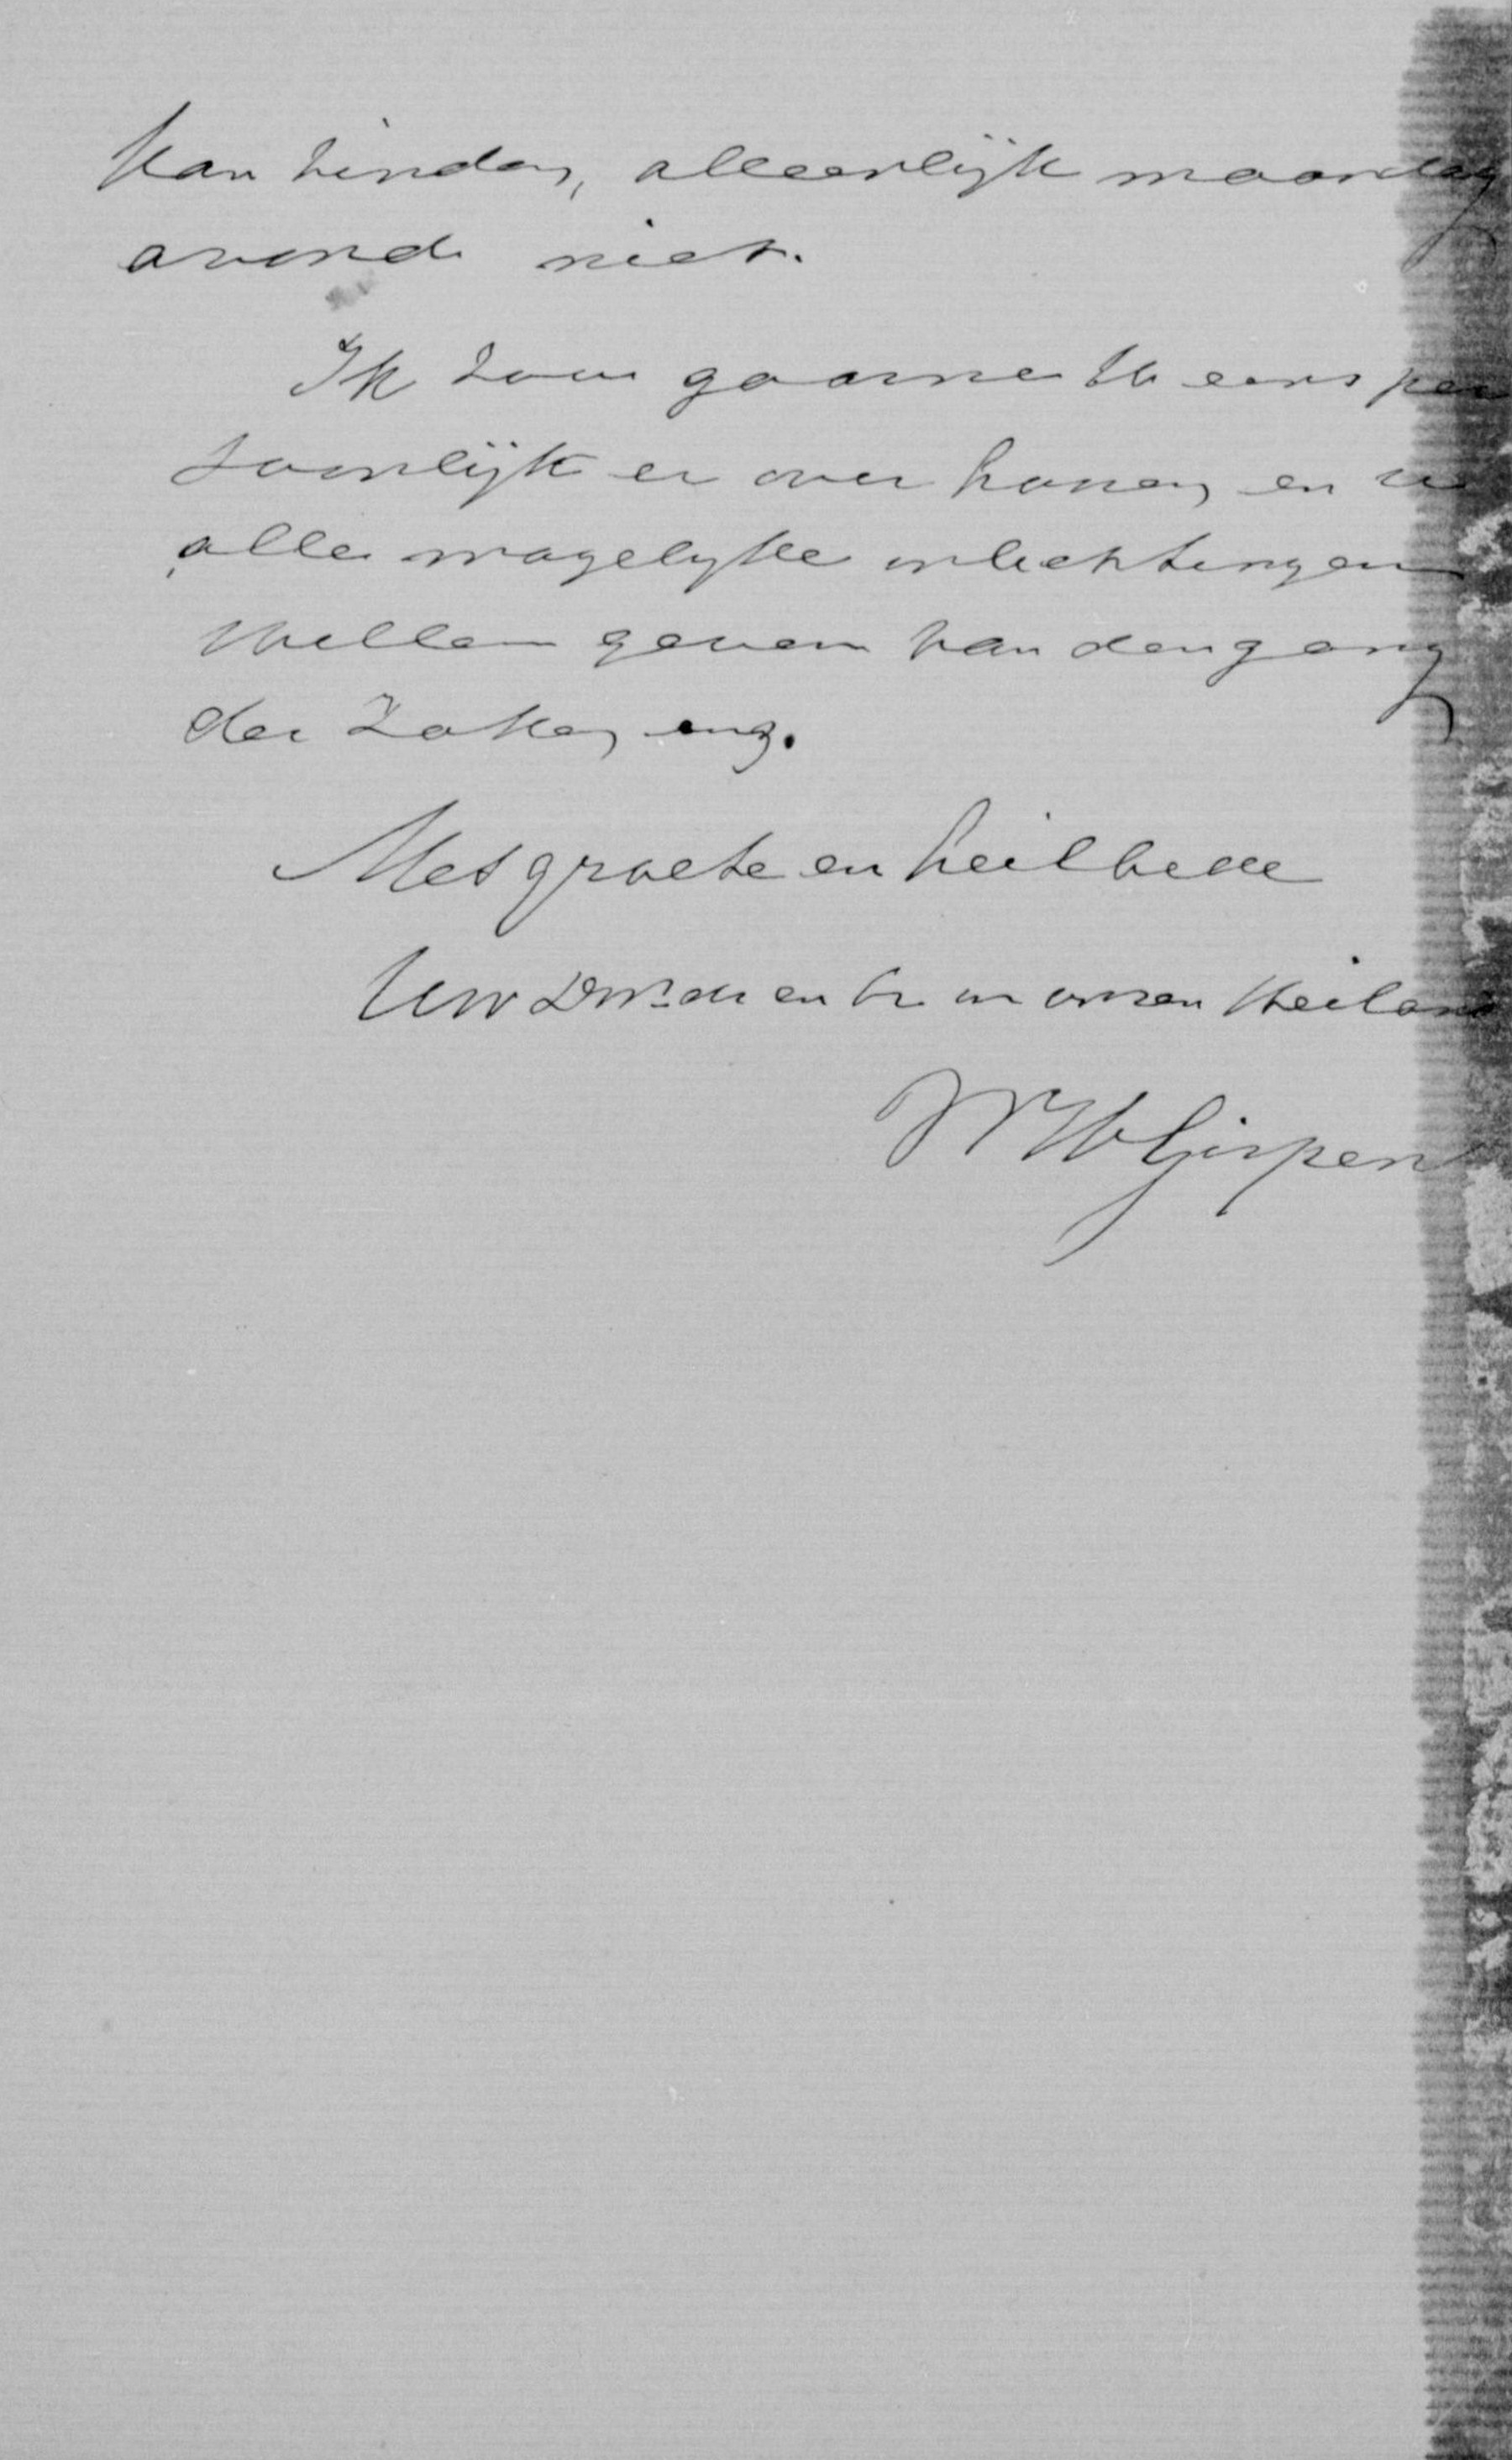 kan vinden, alleenlijk maandag
avond niet.
Ik zou gaarne U eens per
soonlijk er over hooren en u
alle mogelijke inlichtingen
willen geven van den gang
der zaken enz.
Met groete en heilbede
Uw Dw. dr en br. in onzen Heiland
W H Gispen